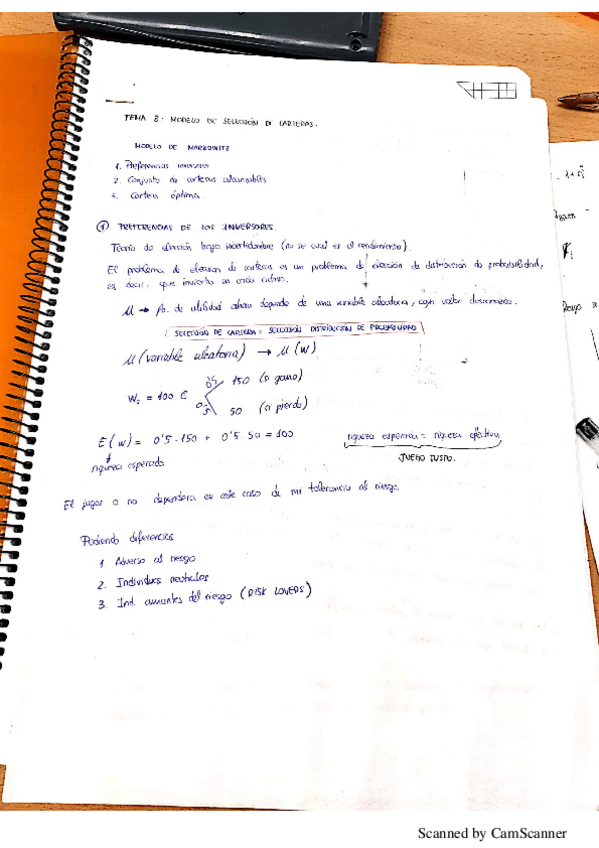 TEMA 2: MODELO DE SELECCIÓN DE CARTERAS.
MODELO DE MARKOWITZ
1. Preferencias inversores
2. Conjunto de carteras
3. Cartera óptima.
① PREFERENCIAS DE LOS INVERSORES.
Teoría de elección bajo incertidumbre (no se cual es el rendimiento).
El problema de elección de carteras es un problema de elección de distribución de probabilidad,
es decir, que invierto en cada activo.
μ → de utilidad ahora depende de una variable aleatoria, cuyo valor desconozco.
SELECCIÓN DE CARTERA = SELECCIÓN DISTRIBUCIÓN DE PROBABILIDAD
μ (variable aleatoria) → μ (W)
0'5 150 (si gano)
W₀ = 100 €
0'5 50 (si pierdo)
E(W) = 0'5 · 150 + 0'5 · 50 = 100
riqueza esperada = riqueza efectiva
riqueza esperada
JUEGO JUSTO.
El jugar o no dependerá en este caso de mi tolerancia al riesgo.
Podiendo diferenciar
1. Adverso al riesgo
2. Individuos neutrales
3. Ind. amantes del riesgo (RISK LOVERS)
Scanned by CamScanner